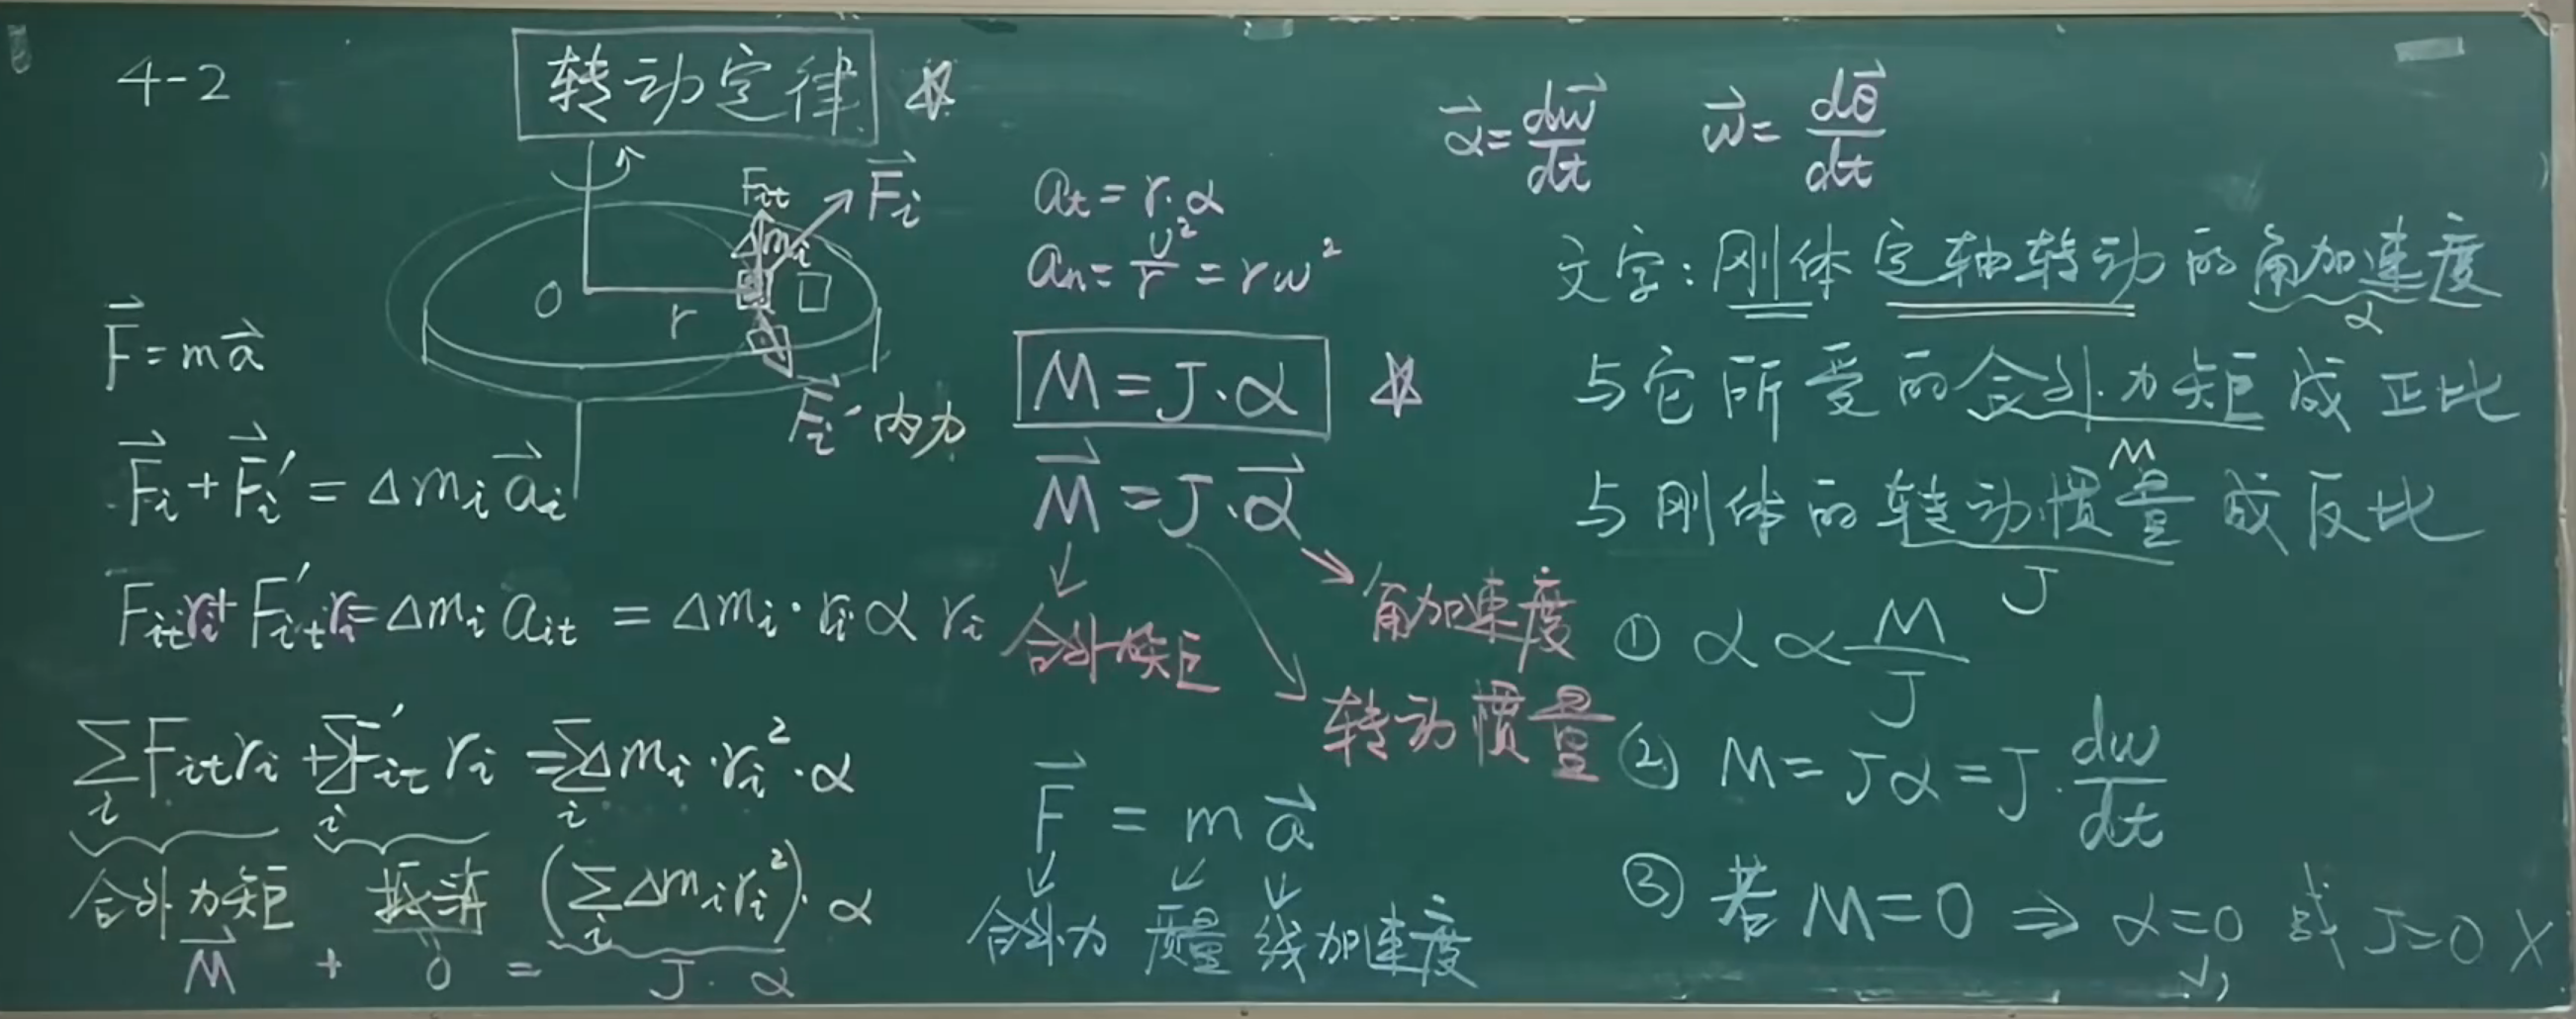 4-2
转动定律
F⃗=ma⃗
F⃗i+F⃗i′=Δmia⃗i
Fitri+Fi′tri=Δmiait=Δmi·riαri
∑iFitri+∑iF′itri=∑iΔmi·ri²·α
合外力矩 抵消 (∑iΔmiri²)·α
M⃗ + 0 = J·α
Fit
F⃗i
Δmi
O
r
F⃗i′内力
at=r·α
an=v²/r=rω²
M=J·α
M⃗=J·α⃗
角加速度
合外力矩
转动惯量
F⃗=ma⃗
合外力 质量 线加速度
α⃗=dω⃗/dt ω⃗=dθ⃗/dt
文字:刚体定轴转动的角加速度
α
与它所受的合外力矩成正比
M
与刚体的转动惯量成反比
J
① α∝M/J
② M=Jα=J·dω/dt
③ 若M=0⇒α=0 或J=0 X
√